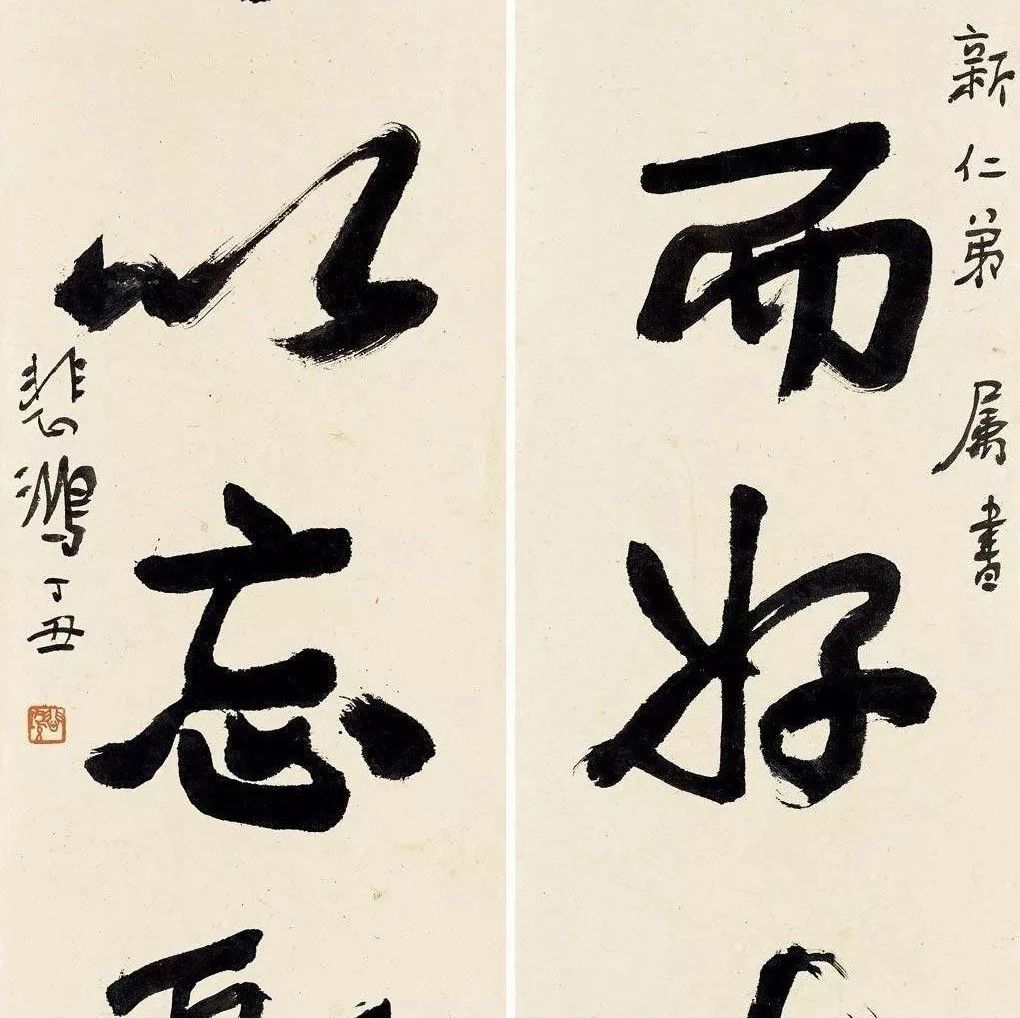 新仁弟 属書
而好
以忘
悲鴻丁丑